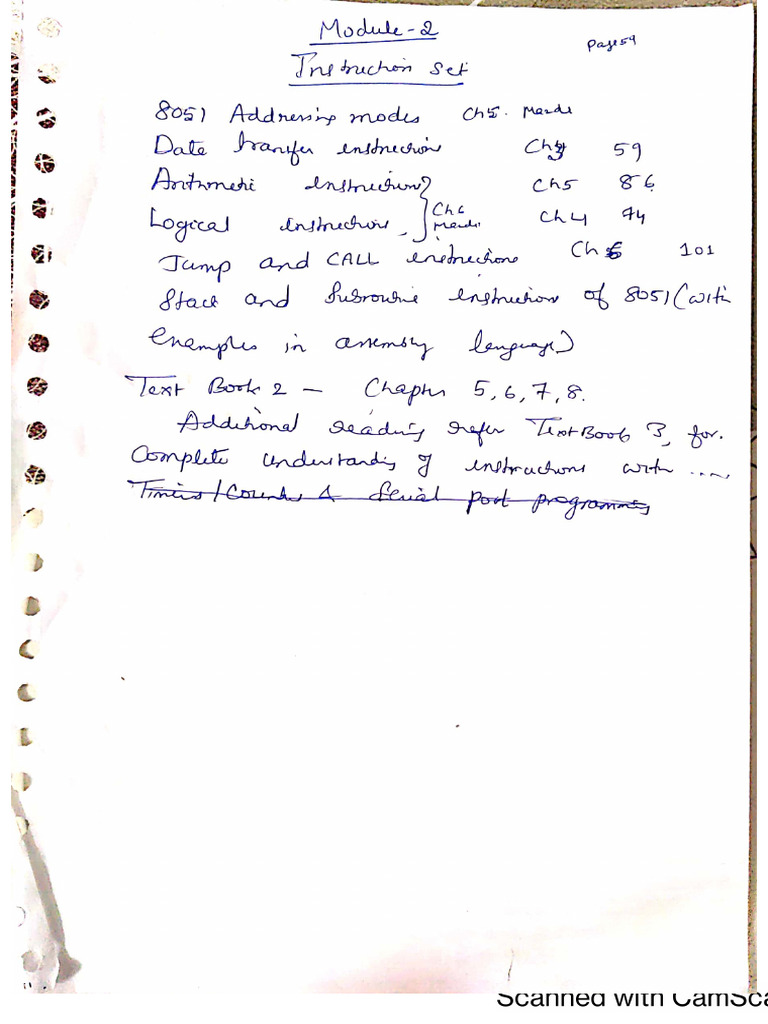 Module-2
Page 59
Instruction Set
8051 Addressing modes Ch5. Mazidi
Data transfer instruction Ch 59
Arithmetic instruction Ch5 86
Logical instruction Ch6 Mazidi Ch4 74
Jump and CALL instructions Ch6 101
Stack and Subroutine instruction of 8051 (with
examples in assembly language)
Text Book 2 - Chapter 5, 6, 7, 8.
Additional reading refer Text Book 3, for
Complete understanding of instructions with ....
Timers/Counters & Serial port programming
Scanned with CamSca